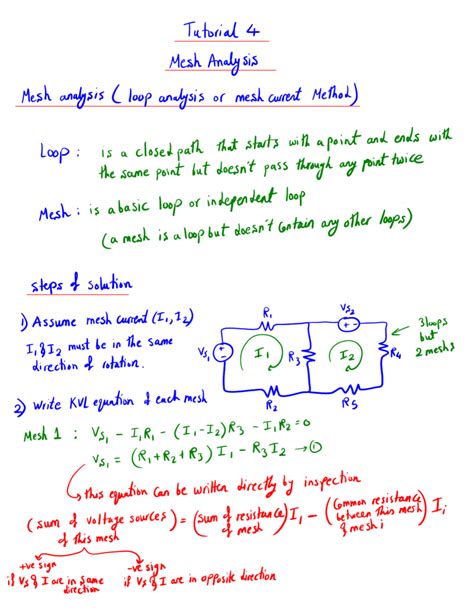 Tutorial 4
Mesh Analysis
Mesh analysis ( loop analysis or mesh current Method)
Loop : is a closed path that starts with a point and ends with
the same point but doesn't pass through any point twice
Mesh : is a basic loop or independent loop
(a mesh is a loop but doesn't contain any other loops)
steps of solution
1) Assume mesh current (I1, I2)
I1 & I2 must be in the same
direction of rotation.
R1
VS2
+ -
VS1
+
-
I1
R3
I2
R4
R2
R5
3 loops
but
2 meshs
2) Write KVL equation of each mesh
Mesh 1 : VS1 - I1R1 - (I1-I2)R3 - I1R2 = 0
VS1 = (R1+R2+R3) I1 - R3I2 → ①
this equation can be written directly by inspection
(sum of voltage sources of this mesh) = (sum of resistance of mesh) I1 - (Common resistance between this mesh & mesh i) Ii
+ve sign
if VS & I are in same
direction
-ve sign
if VS & I are in opposite direction